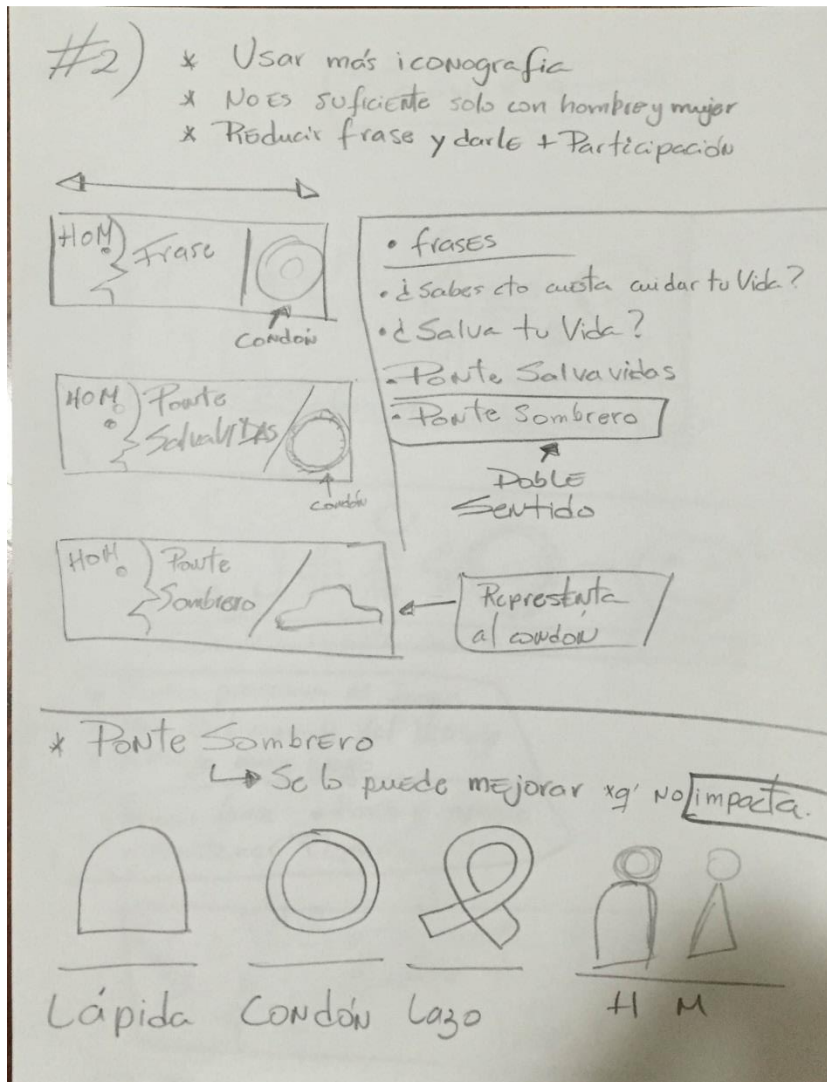 #2) * Usar más iconografia
* No es suficiente solo con hombre y mujer
* Reducir frase y darle + Participación
HOM Frase
Condón
HOM. Ponte
SalvaVIDAS
condón
HOM. Ponte
Sombrero
• frases
• ¿Sabes cto cuesta cuidar tu Vida?
• ¿Salva tu Vida?
• Ponte Salvavidas
• Ponte Sombrero
Doble
Sentido
Representa
al condón
* Ponte Sombrero
Se lo puede mejorar xq' no impacta.
Lápida Condón Lazo H M